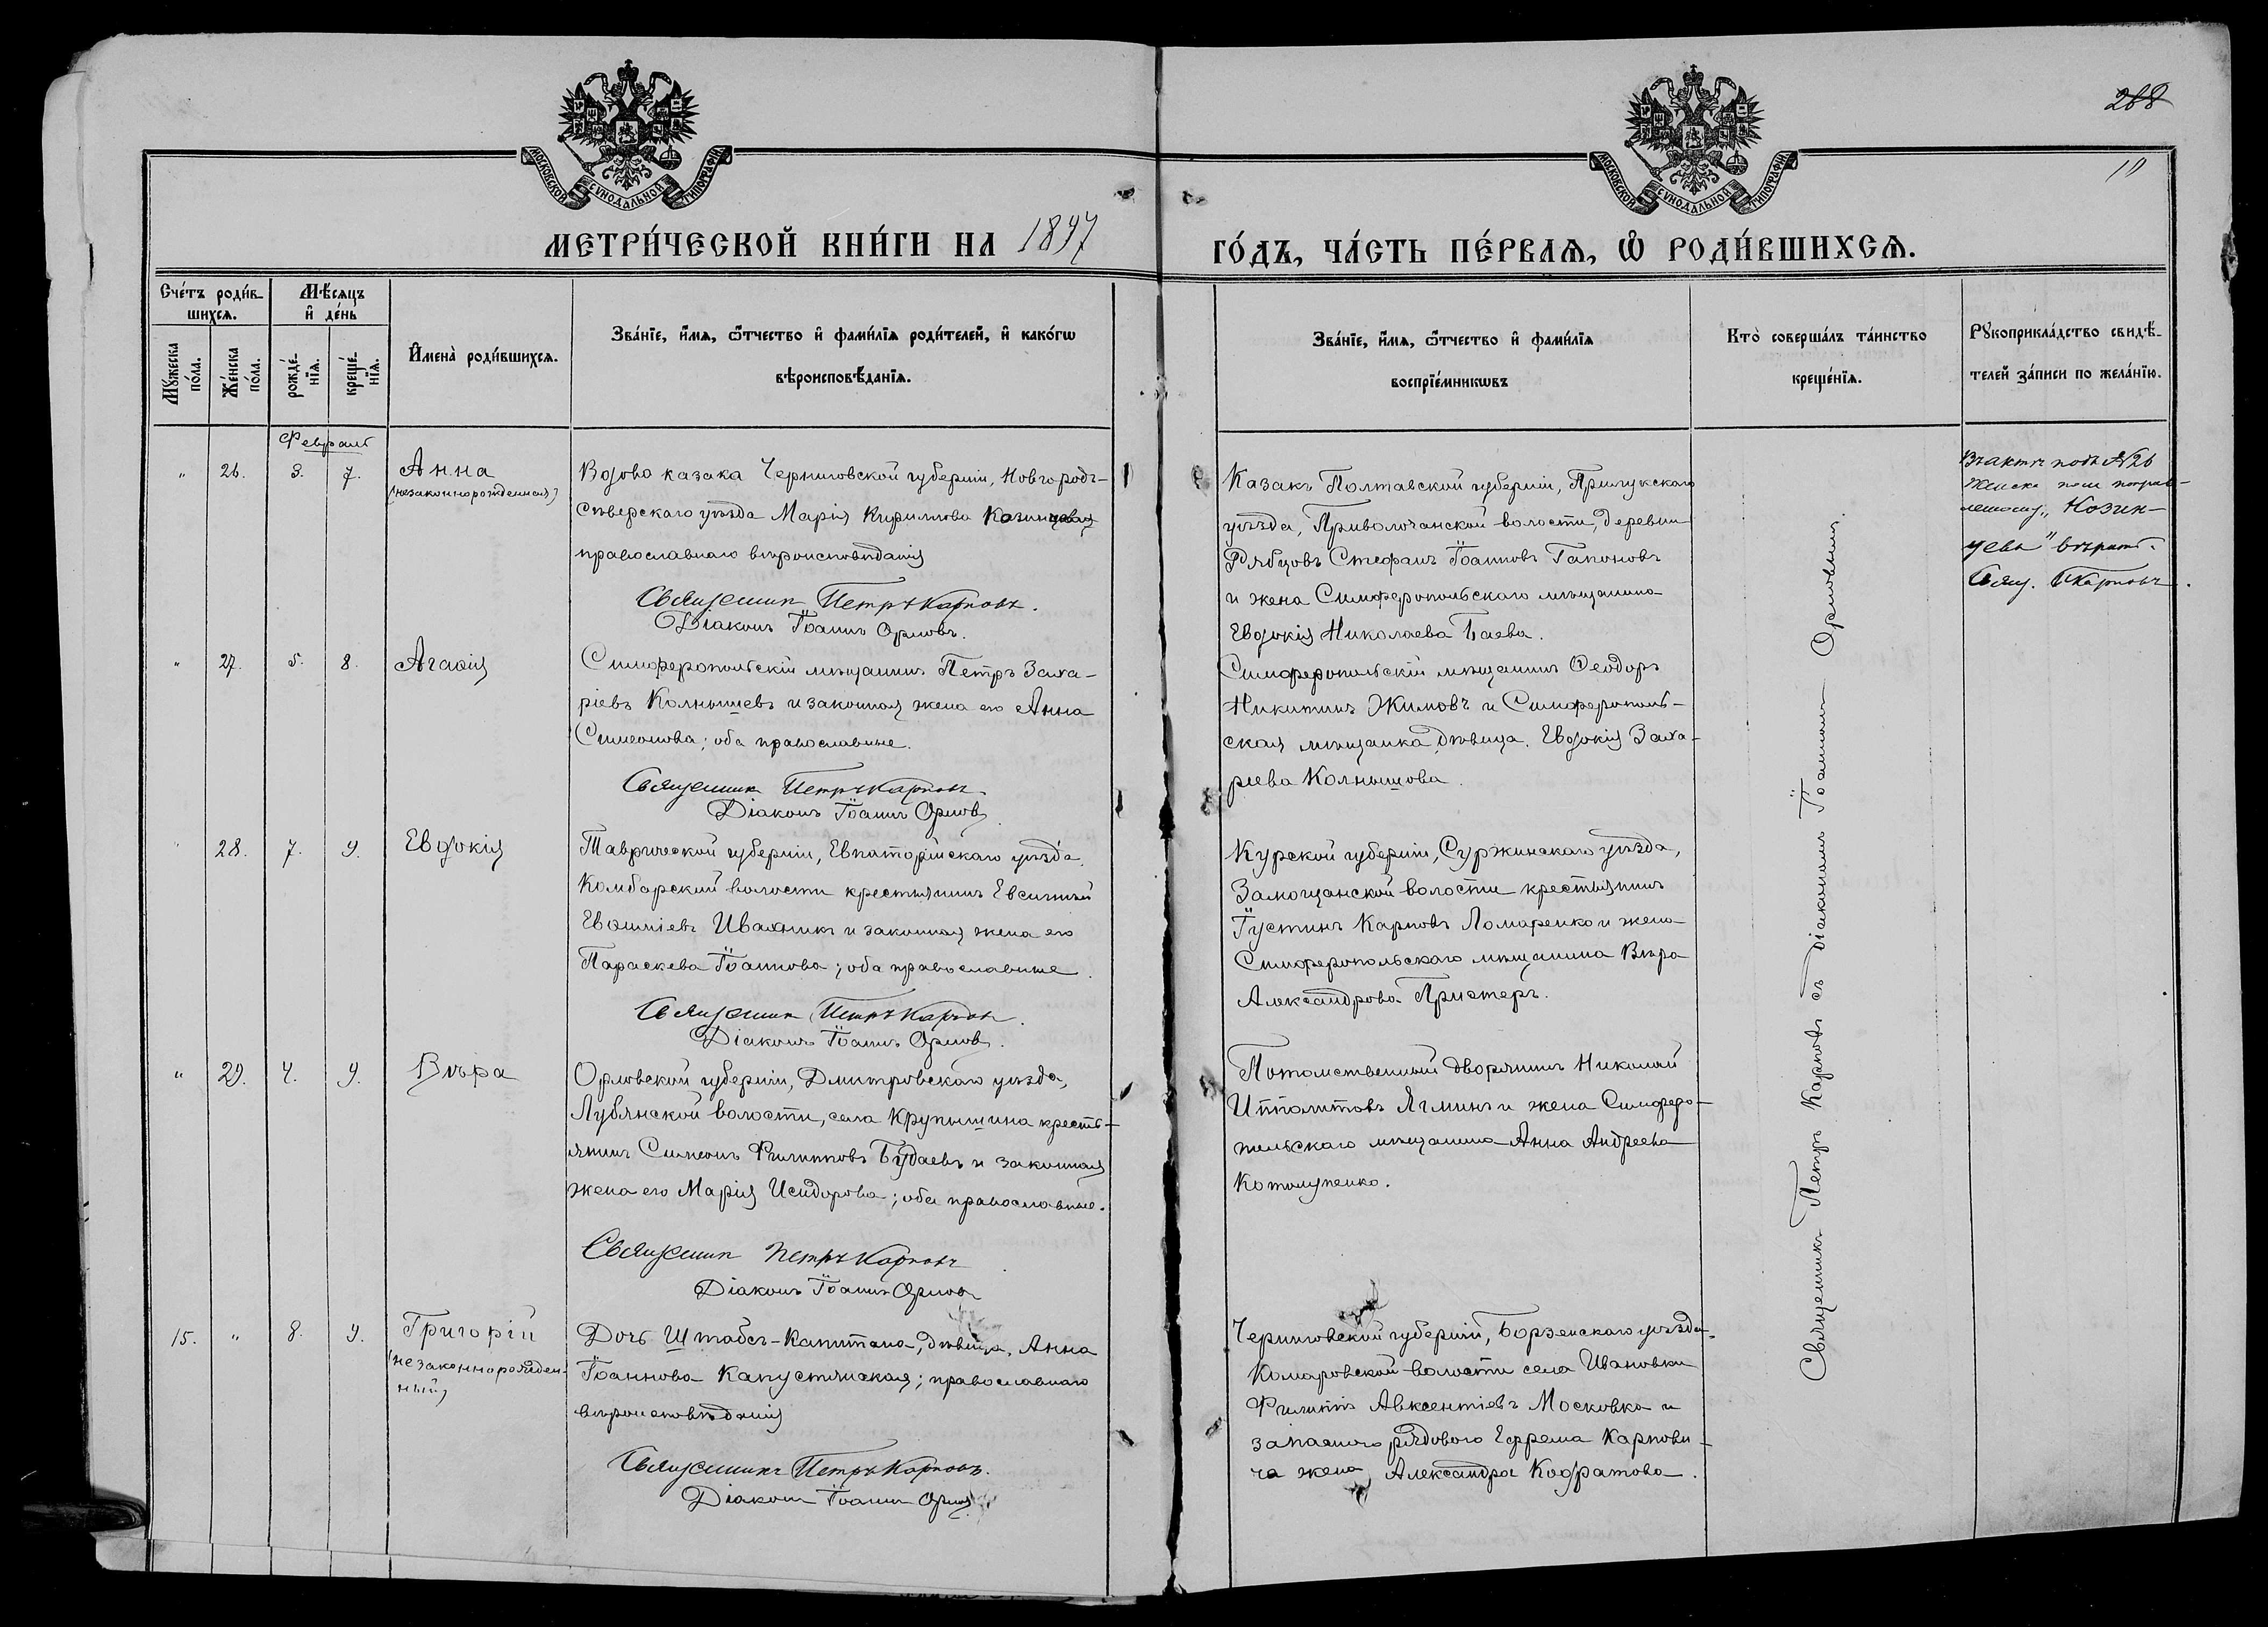 268
10
МОСКОВСКОЙ СУНОДАЛЬНОЙ ТИПОГРАФІИ
МОСКОВСКОЙ СУНОДАЛЬНОЙ ТИПОГРАФІИ
МЕТРИ́ЧЕСКОЙ КНИ́ГИ НА 1897
ГО́ДЪ, ЧА́СТЬ ПЕ́РВАѦ, Ѡ РОДИ́ВШИХСѦ.
Сче́тъ роди́в-
шихсѧ.
Мѣ́сѧцъ
и҆ де́нь
Мꙋжеска
по́ла.
Же́нска
по́ла.
рожде́-
нїѧ.
креще́-
нїѧ.
И҆мена̀ роди́вшихсѧ.
Зва́нїе, и҆́мѧ, ѻ҆́тчество и҆ фами́лїѧ роди́телей, и҆ како́гѡ
вѣроисповѣ́данїѧ.
Зва́нїе, и҆́мѧ, ѻ҆́тчество и҆ фами́лїѧ
воспрїе́мникѡвъ
Кто̀ соверша́лъ та́инство
креще́нїѧ.
Рꙋкоприкла́дство свидѣ́-
телей за́писи по жела́нїю.
Февраль
" 26. 3. 7. Анна
(незаконнорожденная)
Вдова казака Черниговской губерніи, Новгородъ-
Сѣверскаго уѣзда Марія Кирилова Козинцева,
православнаго вѣроисповѣданія
Священникъ Петръ Карповъ.
Діаконъ Іоаннъ Орловъ.
Казакъ Полтавской губерніи, Прилукскаго
уѣзда, Приволочанской волости, деревни
Рябцовъ Стефанъ Іоанновъ Гапоновъ
и жена Симферопольскаго мѣщанина
Евдокія Николаева Баева.
Въ актѣ подъ №26
женска пола поправ-
ленному „Козин-
цева" вѣрить.
Свящ. П Карповъ.
" 27. 5. 8. Агаѳія
Симферопольскій мѣщанинъ Петръ Заха-
ріевъ Колнышевъ и законная жена его Анна
Симеонова; оба православные.
Священникъ Петръ Карповъ
Діаконъ Іоаннъ Орловъ
Симферопольскій мѣщанинъ Ѳеодоръ
Никитинъ Жимовъ и Симферополь-
ская мѣщанка дѣвица. Евдокія Заха-
ріева Колнышова.
28. 7. 9. Евдокія
Таврической губерніи, Евпаторійскаго уѣзда,
Камбарской волости крестьянинъ Евсигній
Ивахникъ и законная жена его
Параскева Іоаннова; оба православные.
Священникъ Петръ Карповъ.
Діаконъ Іоаннъ Орловъ.
Курской губерніи, Суржинскаго уѣзда,
Замощанской волости крестьянинъ
Іустинъ Карповъ Ломаренко и жена
Симферопольскаго мѣщанина Вѣра
Александрова Пристеръ.
" 29. 4. 9. Вѣра
Орловской губерніи, Дмитровскаго уѣзда,
Лубянской волости, села Крупышина кресть-
янинъ Симеонъ Филипповъ Будаевъ и законная
жена его Марія Исидорова; оба православные.
Священникъ Петръ Карповъ
Діаконъ Іоаннъ Орловъ
Потомственный дворянинъ Николай
Ипполитовъ Ягминъ и жена Симферо-
польскаго мѣщанина Анна Андреева
Котолупенко.
15. " 8. 9. Григорій
(незаконнорожден-
ный)
Дочь Штабсъ-Капитана, дѣвица, Анна
Іоаннова Капустянская; православнаго
вѣроисповѣданія
Священникъ Петръ Карповъ.
Діаконъ Іоаннъ Орловъ
Черниговской губерніи, Борзенскаго уѣзда,
Комаровской волости села Ивановки
Филиппъ Авксентіевъ Московка и
запаснаго рядового Ефрема Карпови-
ча жена, Александра Кодратова.
Священникъ Петръ Карповъ съ Діакономъ Іоанномъ Орловымъ.